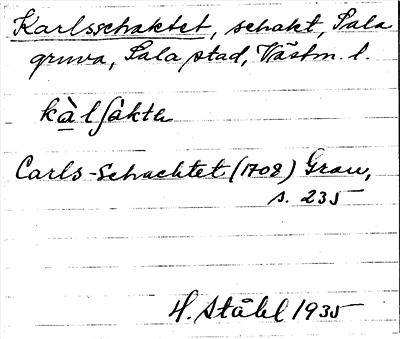 Karlsschaktet, schakt, Sala
gruva, Sala stad, Västm. l.
kàlʃàktə
Carls-Schachtet (1708) Grau,
s. 235
H. Ståhl 1935